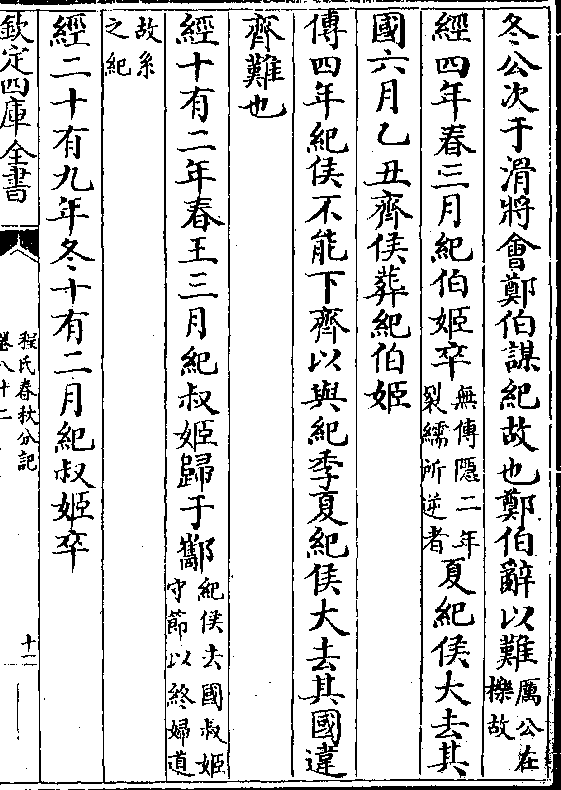 冬公次于滑將會鄭伯謀紀故也鄭伯辭以難厲公在櫟故
經四年春三月紀伯姬卒無傳隱二年裂繻所逆者夏紀侯大去其
國六月乙丑齊侯葬紀伯姬
傳四年紀侯不能下齊以與紀季夏紀侯大去其國違
齊難也
經十有二年春王三月紀叔姬歸于酅紀侯去國叔姬守節以終婦道
故系之紀
經二十有九年冬十有二月紀叔姬卒
欽定四庫全書
程氏春秋分記
卷八十二
十一